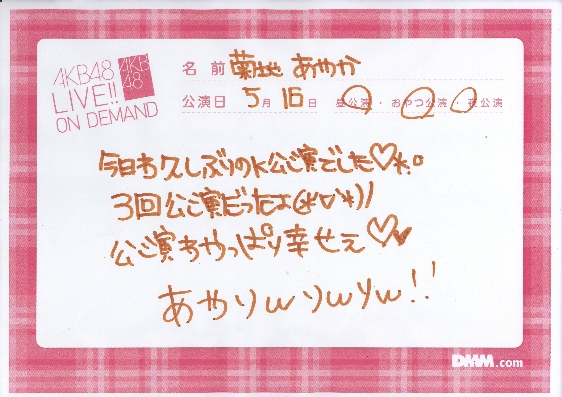 AKB48
LIVE!!
ON DEMAND
AKB
48
名前 菊地 あやか
公演日 5月16日 昼公演・おやつ公演・夜公演
今日も久しぶりのK公演でした♡*。
3回公演だったよ(*∇*)ノ
公演もやっぱり幸せえ♡♥
あやりwりwりw!!
DMM.com